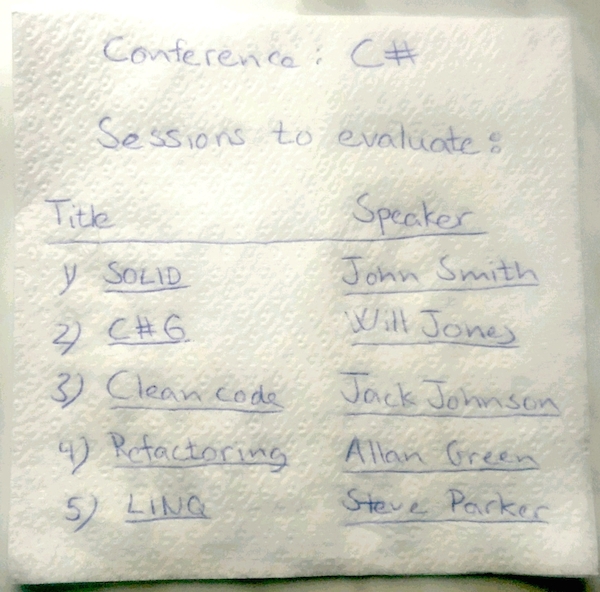 Conference: C#
Sessions to evaluate:
Title Speaker
1) SOLID John Smith
2) C#6 Will Jones
3) Clean code Jack Johnson
4) Refactoring Allan Green
5) LINQ Steve Parker